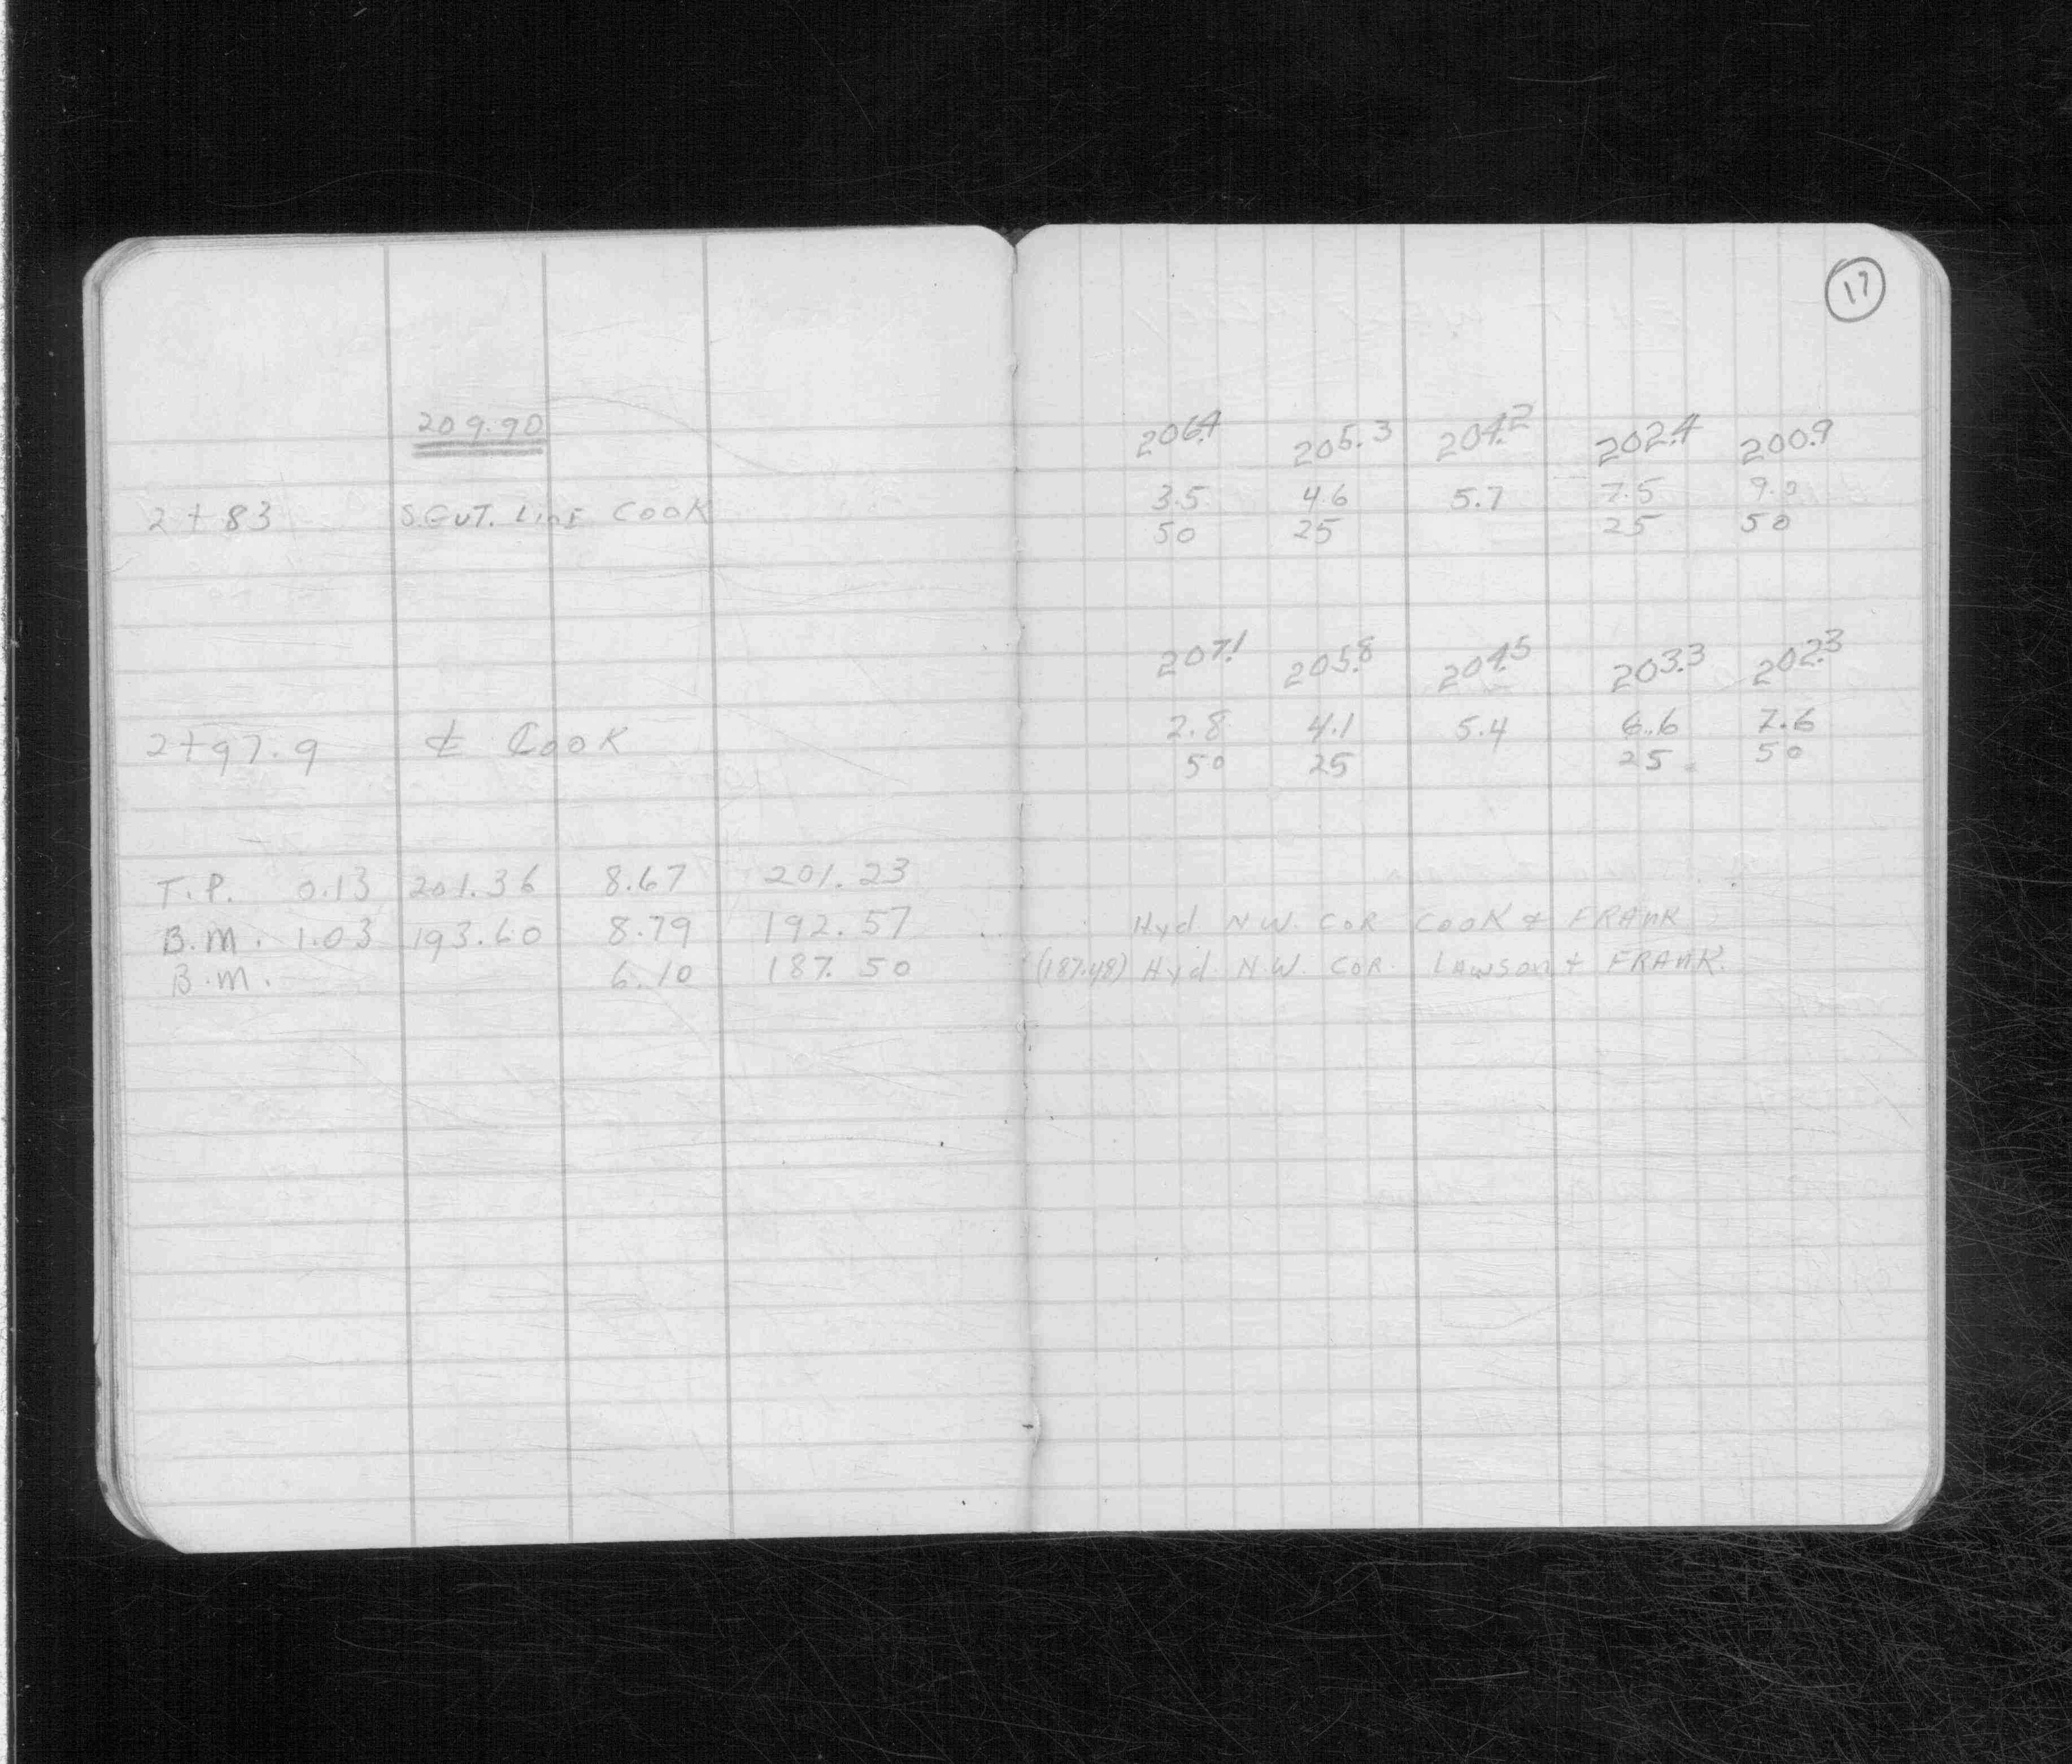 17
209.90
206.4 205.3 204.2 202.4 200.9
2+83 S.GUT. LINE COOK 3.5 4.6 5.7 7.5 9.0
50 25 25 50
207.1 205.8 204.5 203.3 202.3
2+97.9 ₵ COOK 2.8 4.1 5.4 6.6 7.6
50 25 25 50
T.P. 0.13 201.36 8.67 201.23
B.M. 1.03 193.60 8.79 192.57 Hyd N.W. COR COOK & FRANK
B.M. 6.10 187.50 (187.48) Hyd N.W. COR. LAWSON & FRANK.